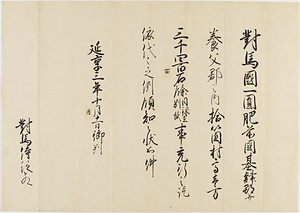 對馬國一圓肥前國基肄郡并
養父郡之内拾箇村高壱万
三千四百石餘目録在別紙事充行之訖
依代々之例領知之状如件
延享三年十月十一日御判
對馬侍従殿